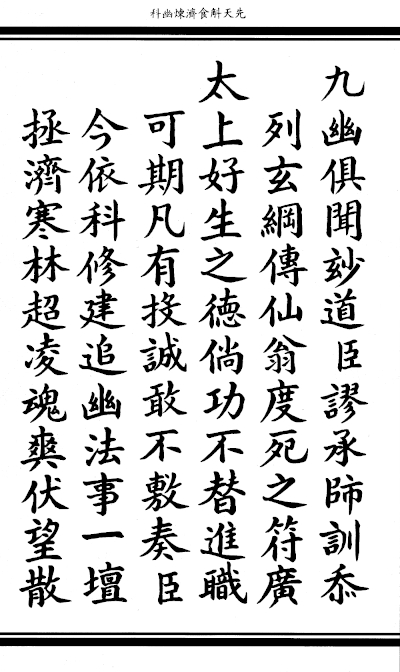 先天斛食濟煉幽科
九幽俱聞玅道臣謬承師訓忝
列玄綱傳仙翁度死之符廣
太上好生之德倘功不替進職
可期凡有投誠敢不敷奏臣
今依科修建追幽法事一壇
拯濟寒林超凌魂爽伏望散